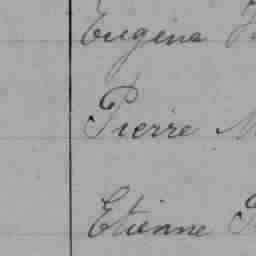 Eugène
Pierre
Etienne